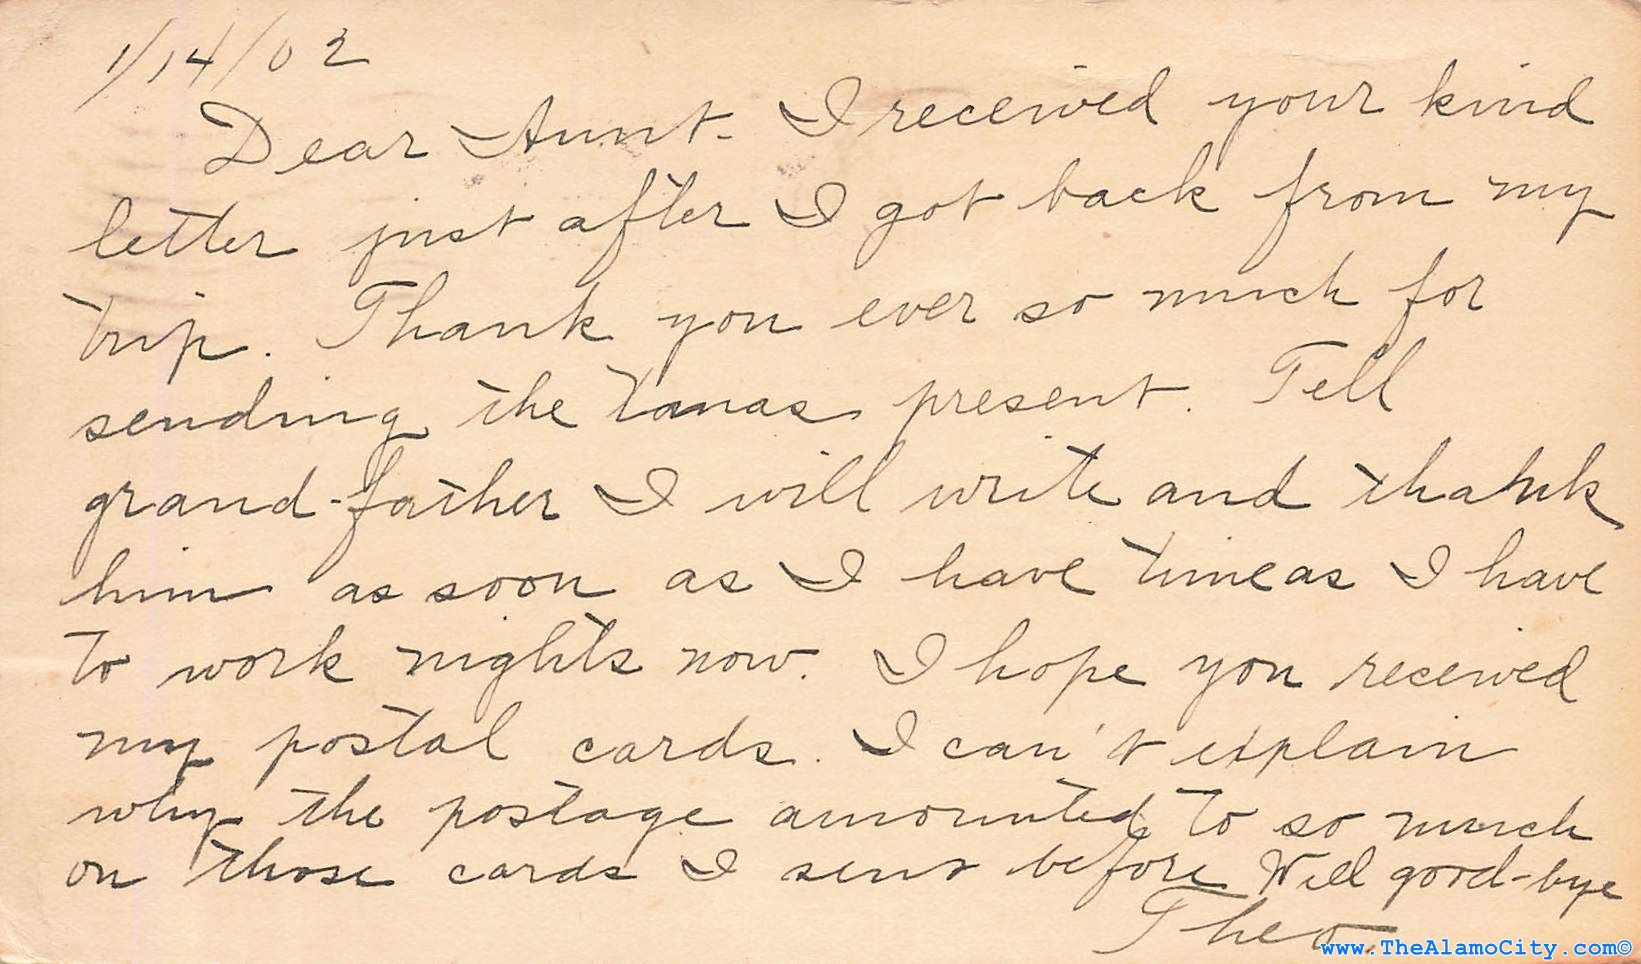 1/14/02
Dear Aunt- I received your kind
letter just after I got back from my
trip. Thank you ever so much for
sending the present. Tell
grand-father I will write and thank
him as soon as I have time as I have
to work nights now. I hope you received
my postal cards. I can't explain
why the postage amounted to so much
on those cards I sent before Well good-bye
Theo.
www.TheAlamoCity.com©